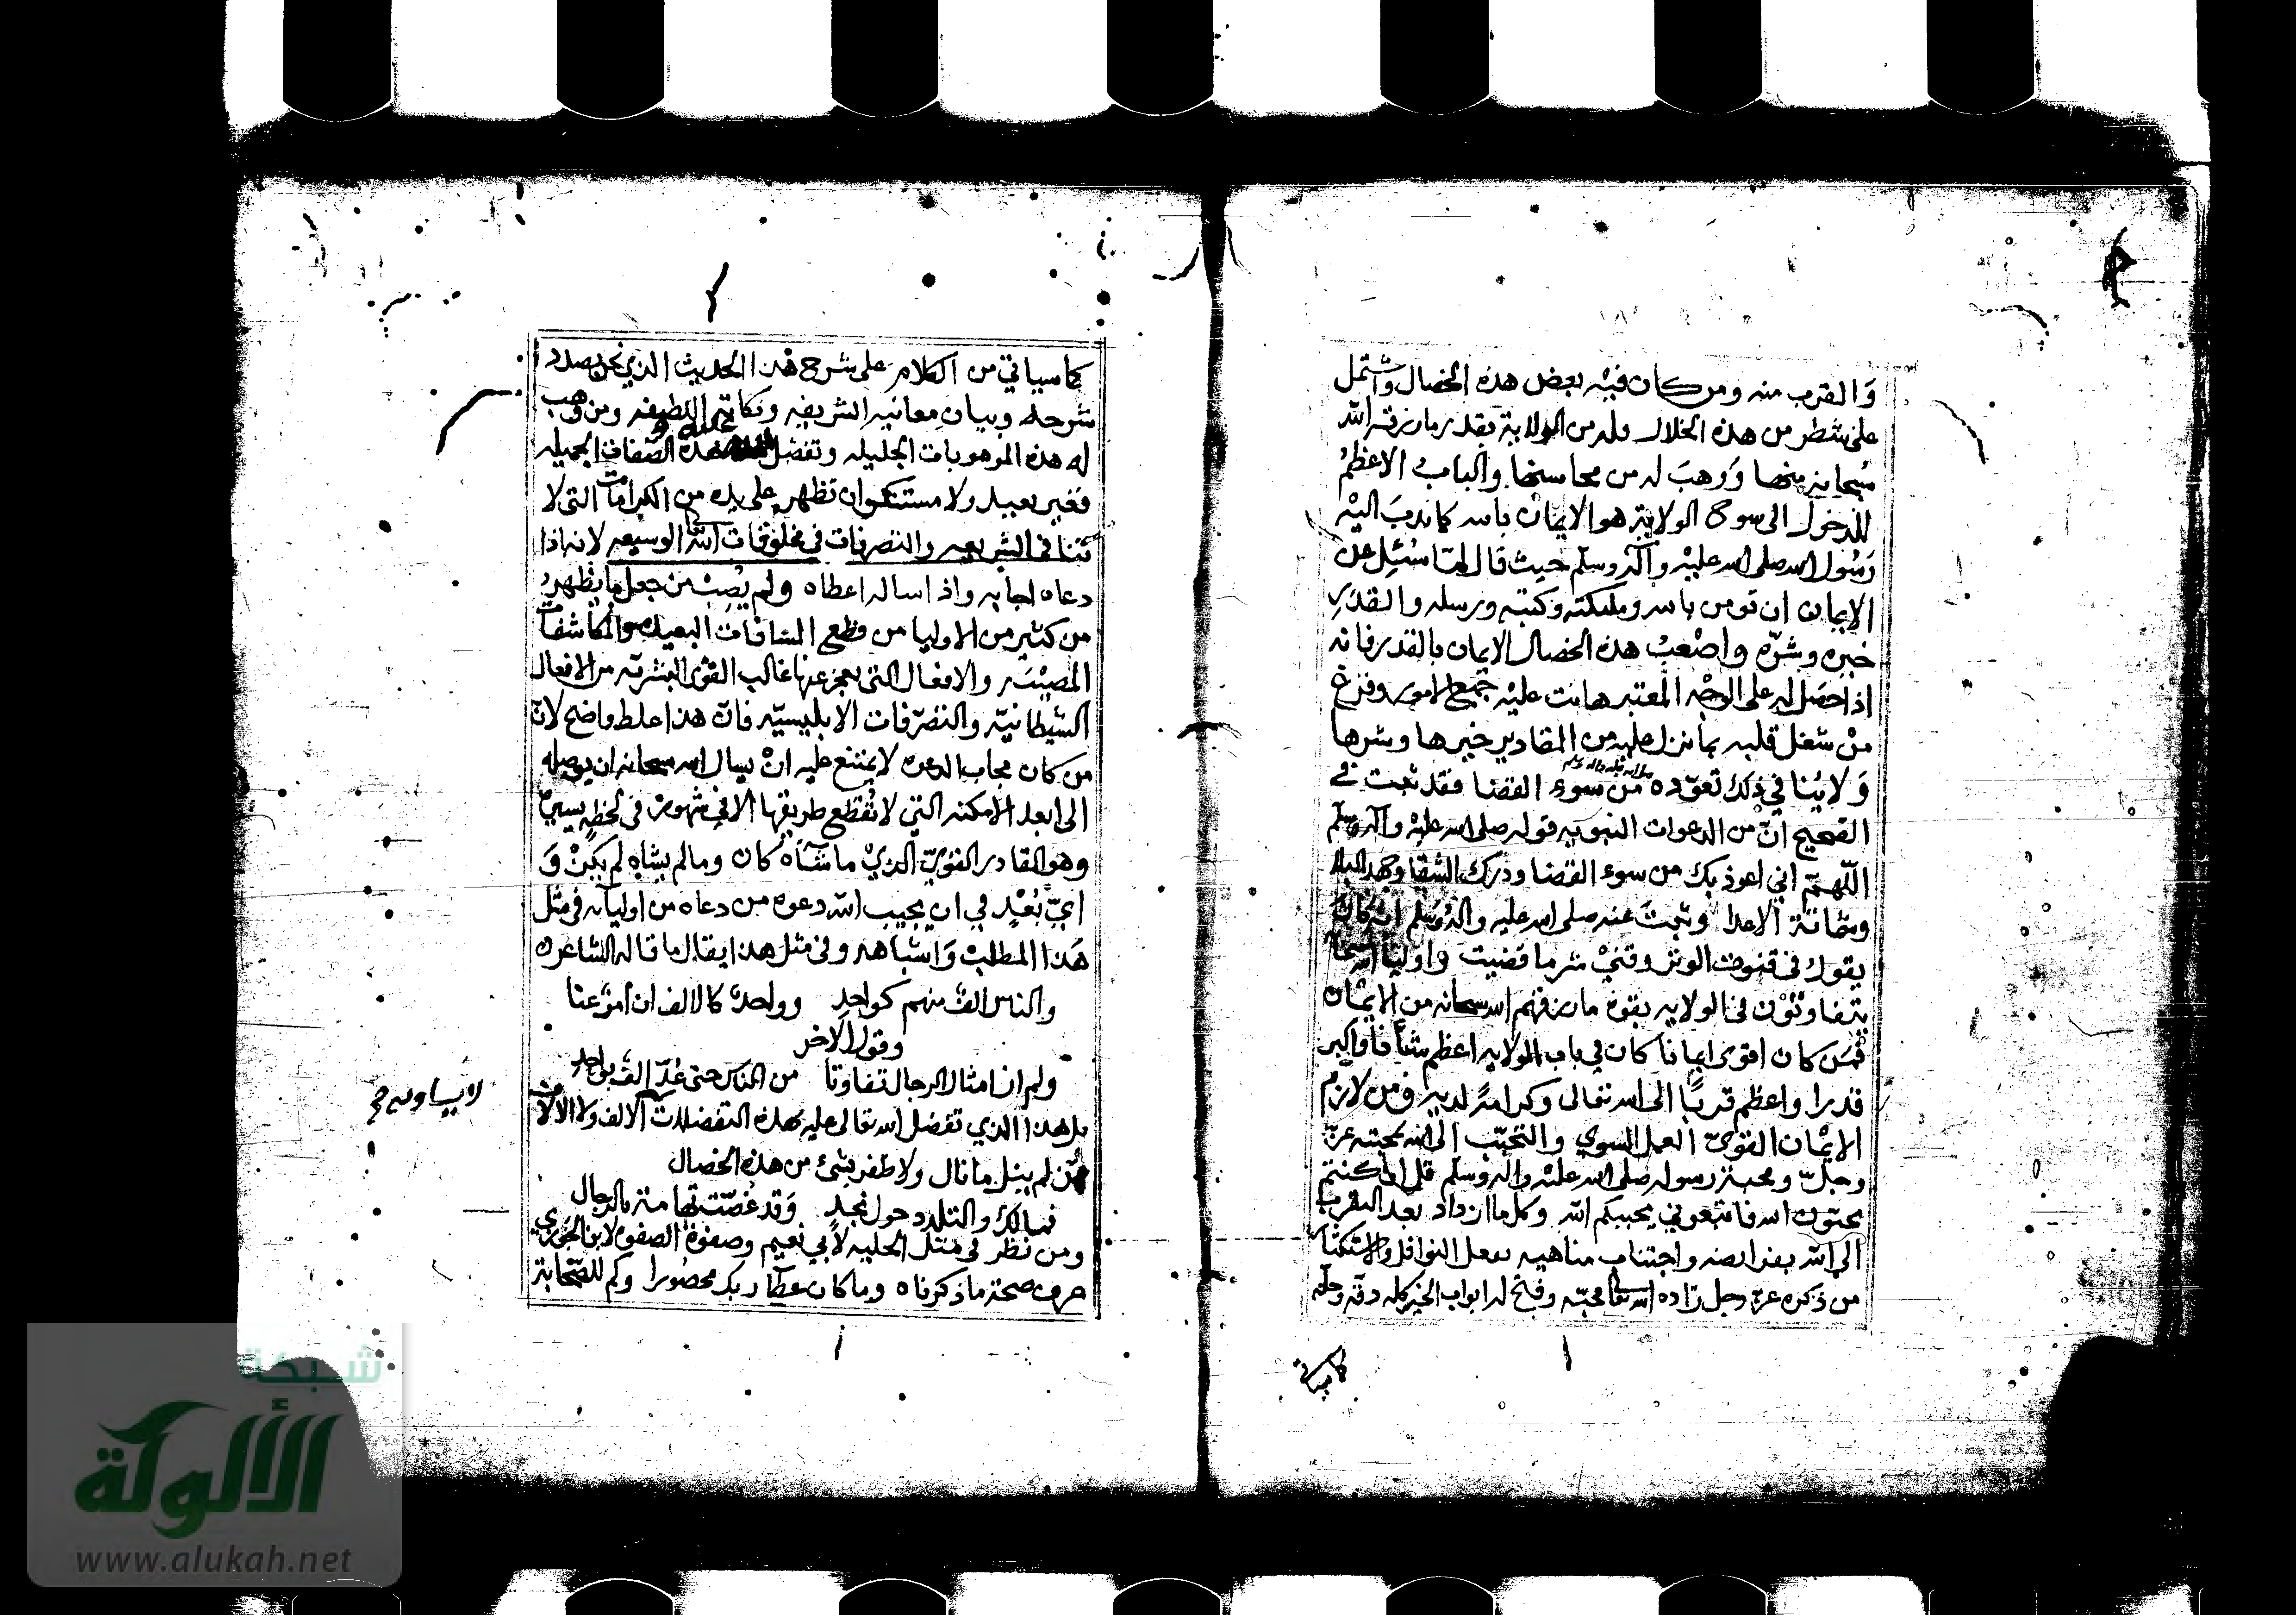 وَالقرب منه ومن كان فيْه بعض هذه الخصال وَاشتمل
على شطر من هذه الخلال فله من الولاية بقدر ما رزقه الله
سُبحانه منها وَوهبَ له من محاسنها والبابُ الاعظمُ
للدخول الى سوح الولاية هو الايمان بالله كما ندبَ اليْه
رَسُول الله صلى الله عليْه وآله وسلم حيث قال لمّا سُئِل عن
الايمان ان تومن بالله وملئكته وكتبه ورسله والقدَرِ
خيره وشرّه واصْعبُ هذه الخصال الايمان بالقدر فانه
اذا حصَل له على الوجْه المعتبر هانت عليْه جميع الامور وفرغ
منْ شغل قلبه بما ينزل عليه من المقادير خيرها وشرها
وَلا يُنافي ذلك تعوّده صلى الله عليه واله وسلم من سوء القضا فقد ثبت في
الصحيح انّ من الدعوات النبويه قوله صلى الله عليْه وآله وسلم
اللهمّ اني اعوذ بك من سوء القضا ودَرك الشقا وجهد البلا
وشماتة الاعدا وثبتَ عنه صلى الله عليه واله وسلم انه كان
يقول في قنوت الوتر وقنيْ شر ما قضيت واوليا الله سبحانه
يتفاوتوْن في الولايه بقوة ما رزقهم الله سبحانه من الايمان
فمَن كان اقوى ايماناً كان في باب الولايه اعظم شأناً واكبر
قدرا واعظم قربًا الى الله تعالى وكرامةً لديه ومن لازم
الايمْان القويّ العمل السوي والتحبّب الى الله بمحبته عزّ
وجلّ ومحبة رسوله صلى الله عليْه واله وسلم قل ان كنتم
تحبّون الله فاتبعوني يحببكم الله وكل ما ازداد بعد التقرب
الى الله بفرايضه واجتناب مناهيه بفعل النوافل والاستكثار
من ذكره عز وجل زاده الله تعا محبّه وفتح له ابواب الخير كله دقه وجلّه
كما سياتي
كما سياتي من الكلام على شرح هذا الحديث الذي نحن بصدد
شرحه وبيان معانيه الشريفه ونكاته اللطيفه ومن وهب
له هذه الموهوبات الجليله وتفضل عليه بهذه الصّفات الجميله
فغير بعيد ولا مستنكر ان تظهر على يده من الكرامات التى لا
تنافى الشريعه والتصرفات في مخلوقات الله الوسيعه لانه اذا
دعاه اجابه واذا ساله اعطاه ولم يُصِبْ من جعل ما يظهرُ
من كثير من الاوليا من قطع المسافات البعيده والمكاشفات
المصيْبَه والافعال التى يعجز عنها غالب القوْى البشرّيه من الافعال
الشيطانيّه والتصرّفات الابليسيّه فانّ هذا غلط واضح لانّ
من كان مجاب الدعوه لا يمتنع عليه انْ يسال الله سبحانه ان يوصله
الى ابعد الامكنه التي لا تُقطع طريقها الا في شهور في لحظةٍ يسيرةٍ
وهو القادر القوّي الذيْ ما شاه كان وما لم يشاه لم يكنْ وَ
ايّ بُعْدٍ في ان يجيب الله دعوه من دعاه من اوليآئه في مثل
هَذا المطلب وَاشباهه وفي مثل هذا يقال ما قاله الشاعر ه
والناس الفٌ منهم كواحدٍ وواحدٌ كالالف ان امرٌ عنا
وقول الاخر
ولم ار امثال الرجال تفاوتا من الناس حتى عُدّ الفٌ بواحد
بل هذا الذي تفضل الله تعالى عليه بهذه التفضلات لا يساويه الالف ولا الالاف
ممّن لم ينل ما نال ولا ظفر بشئ من هذه الخصال
فما لك والتلدد حول نجدٍ وَقد غصّت تهامة بالرجال
ومن نظر في مثل الحليه لأبي نعيم وصفوة الصفوه لابن الجوزي
عرف صحة ما ذكرناه وما كان عطآ ربك محصُورا وكم للصّحابة
لا يساويه صح
شبكة
الألوكة
www.alukah.net